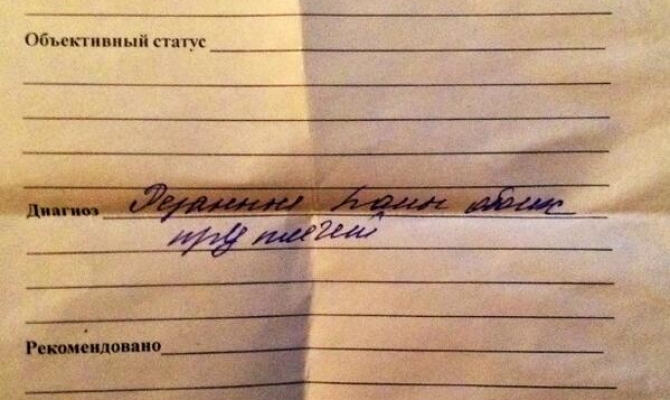 Объективный статус
Диагноз Резанные раны обоих
предплечий
Рекомендовано